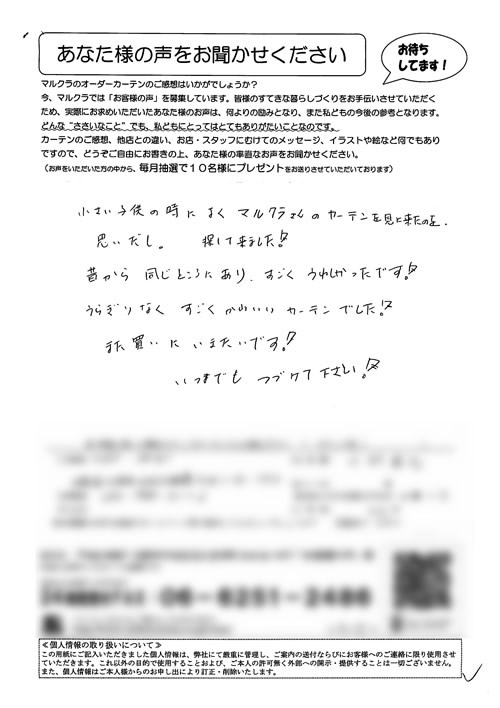 あなた様の声をお聞かせください
お待ち
してます！
マルクラのオーダーカーテンのご感想はいかがでしょうか？
今、マルクラでは「お客様の声」を募集しています。皆様のすてきな暮らしづくりをお手伝いさせていただく
ため、実際にお求めいただいたあなた様のお声は、何よりの励みとなり、また私どもの今後の参考となります。
どんな“ささいなこと”でも、私どもにとってはとてもありがたいことなのです。
カーテンのご感想、他店との違い、お店・スタッフにむけてのメッセージ、イラストや絵など何でもあり
ですので、どうぞご自由にお書きの上、あなた様の率直なお声をお聞かせください。
（お声をいただいた方の中から、毎月抽選で１０名様にプレゼントをお送りさせていただいております）
小さい子供の時によく マルクラさんの カーテンを見に来たのを、
思いだし。 探して来ました！
昔から 同じところにあり、すごく うれしかったです！
うらぎりなく すごく かわいい カーテン でした！
また買いに いきたいです！
いつまでも つづけて下さい！
06-6251-2486
≪個人情報の取り扱いについて≫
この用紙にご記入いただきました個人情報は、弊社にて厳重に管理し、ご案内の送付ならびにお客様へのご連絡に限り使用させ
ていただきます。これ以外の目的で使用することおよび、ご本人の許可無く外部への開示・提供することは一切ございません。
また、個人情報はご本人様からのお申し出により訂正・削除いたします。